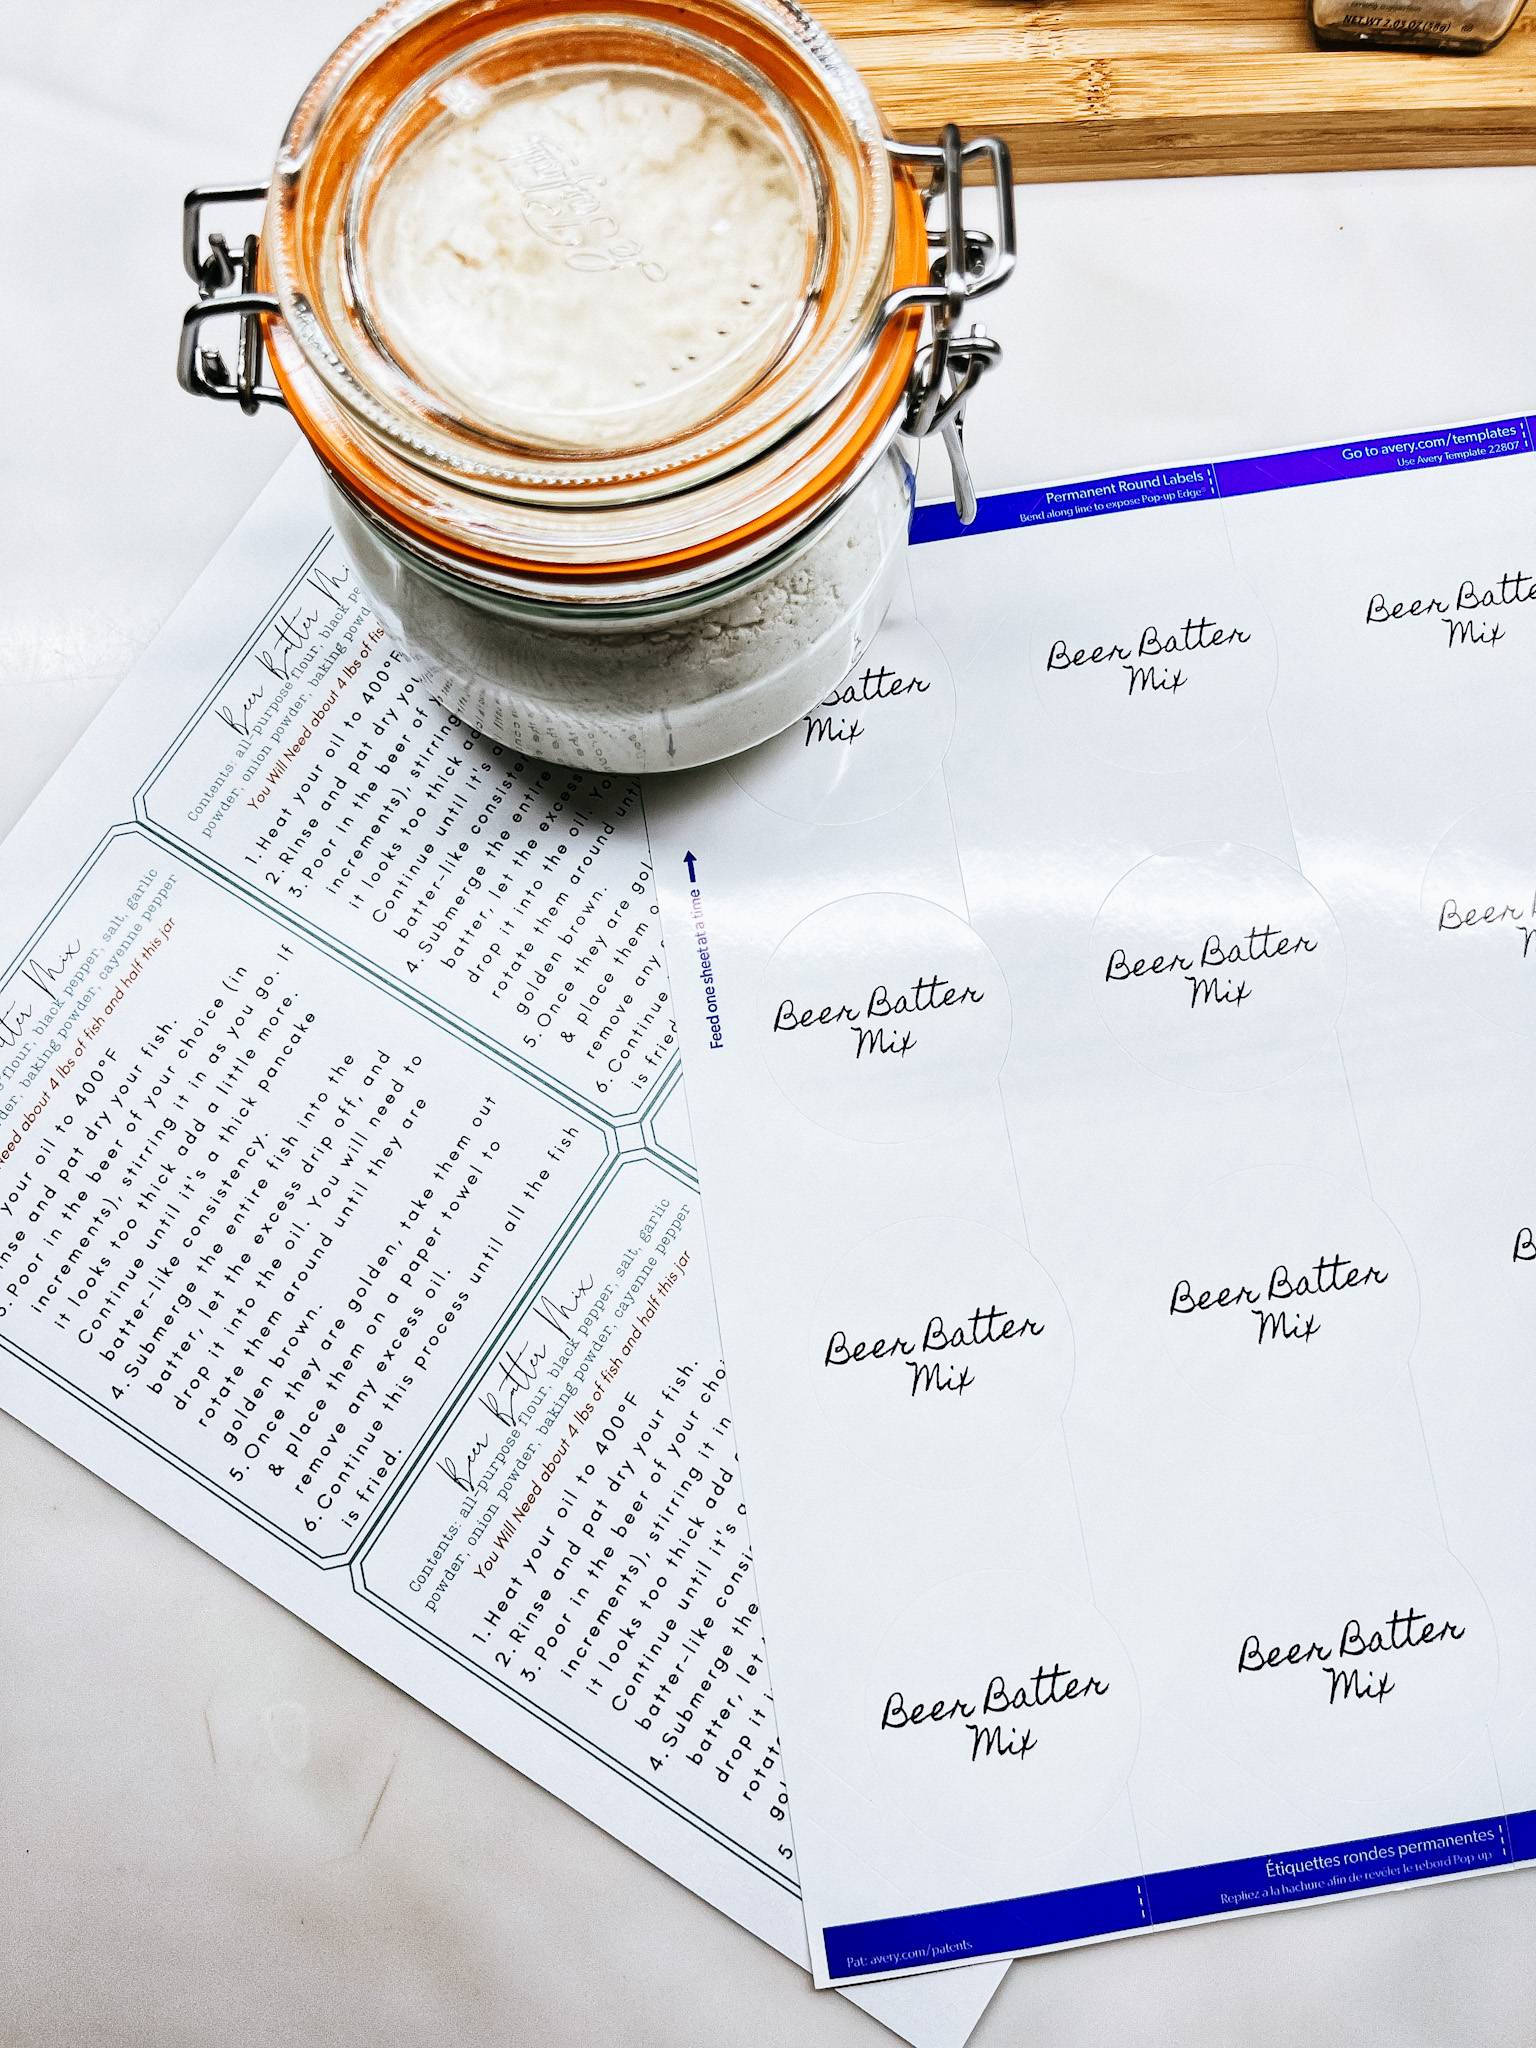 NET WT 2.05 OZ (58g)
Beer Batter
Contents: all-purpose flour, black
powder, onion powder, baking
You Will Need about 4 lbs of
1. Heat your oil to 400°F
2. Rinse and pat dry
3. Poor in the beer of
increments), stirring
it looks too thick
Continue until it's
batter-like
4. Submerge the entire
batter, let the excess
drop it into the oil.
rotate them around
golden brown.
5. Once they are
& place them
remove any
6. Continue
is fried
Mix
flour, black pepper, salt, garlic
baking powder, cayenne pepper
Need about 4 lbs of fish and half this jar
your oil to 400°F
and pat dry your fish.
Poor in the beer of your choice (in
increments), stirring it in as you go. If
it looks too thick add a little more.
Continue until it's a thick pancake
batter-like consistency.
4. Submerge the entire fish into the
batter, let the excess drip off, and
drop it into the oil. You will need to
rotate them around until they are
golden brown.
5. Once they are golden, take them out
& place them on a paper towel to
remove any excess oil.
6. Continue this process until all the fish
is fried.
Beer Batter Mix
Contents: all-purpose flour, black pepper, salt, garlic
powder, onion powder, baking powder, cayenne pepper
You Will Need about 4 lbs of fish and half this jar
1. Heat your oil to 400°F
2. Rinse and pat dry your fish.
3. Poor in the beer of your
increments), stirring it in
it looks too thick add
Continue until it's
batter-like
4. Submerge the
batter, let
drop it
5
Permanent Round Labels
Bend along line to expose Pop-up Edge®
Go to avery.com/templates
Use Avery Template 22807
Feed one sheet at a time
Batter
Mix
Beer Batter
Mix
Beer
Mix
Beer Batter
Mix
Beer Batter
Mix
Beer
Beer Batter
Mix
Beer Batter
Mix
Beer Batter
Mix
Beer Batter
Mix
Étiquettes rondes permanentes
Repliez à la hachure afin de révéler le rebord Pop-up
Pat: avery.com/patents